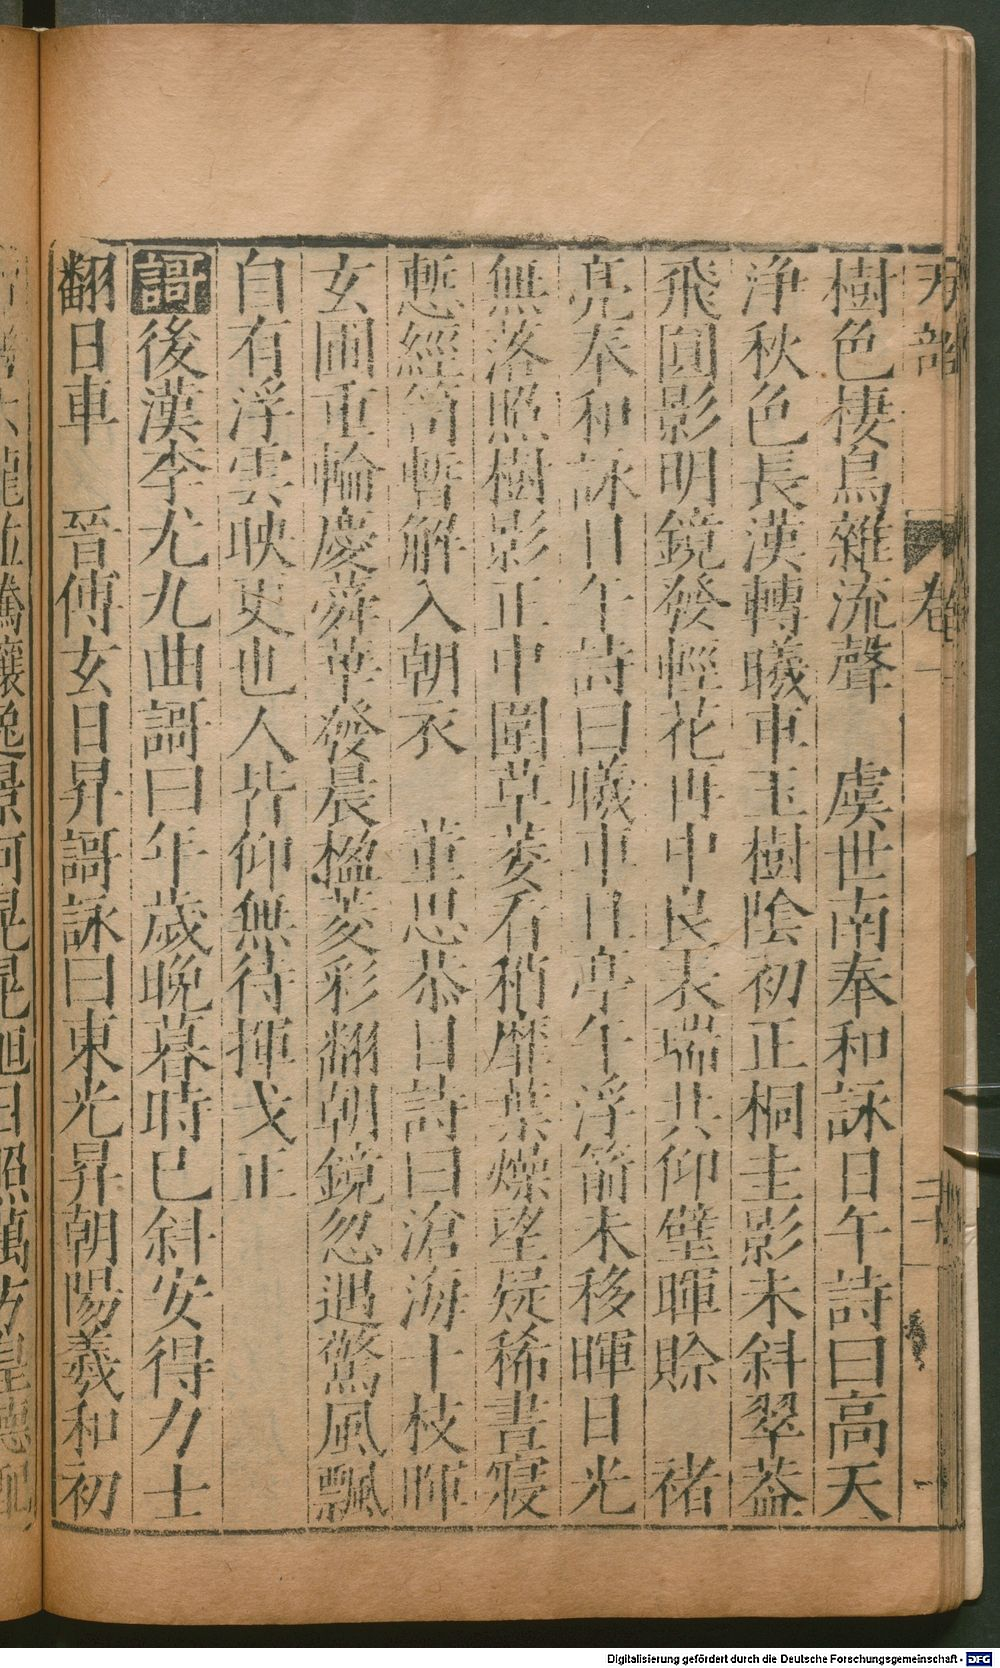 樹色棲烏雜流聲　虞世南奉和詠日午詩曰高天
浄秋色長漢轉曦車玉樹陰初正桐圭影未斜翠蓋
飛圓影明鏡發輕花再中良表瑞共仰璧暉賒　褚
亮奉和詠日午詩曰曦車日亭午浮箭未移暉日光
無落照樹影正中圍草萎看稍靡葉燥望疑稀晝寢
慙經笥暫解入朝衣　董思恭日詩曰滄海十枝暉
玄圃重輪慶蕣華發晨楹菱彩翻朝鏡忽遇驚風飄
自有浮雲映更也人皆仰無待揮戈正
謌後漢李尤九曲謌曰年歲晚暮時已斜安得力士
翻日車　晉傅玄日昇謌詠曰東光昇朝陽羲和初
天部　卷一
Digitalisierung gefördert durch die Deutsche Forschungsgemeinschaft - DFG